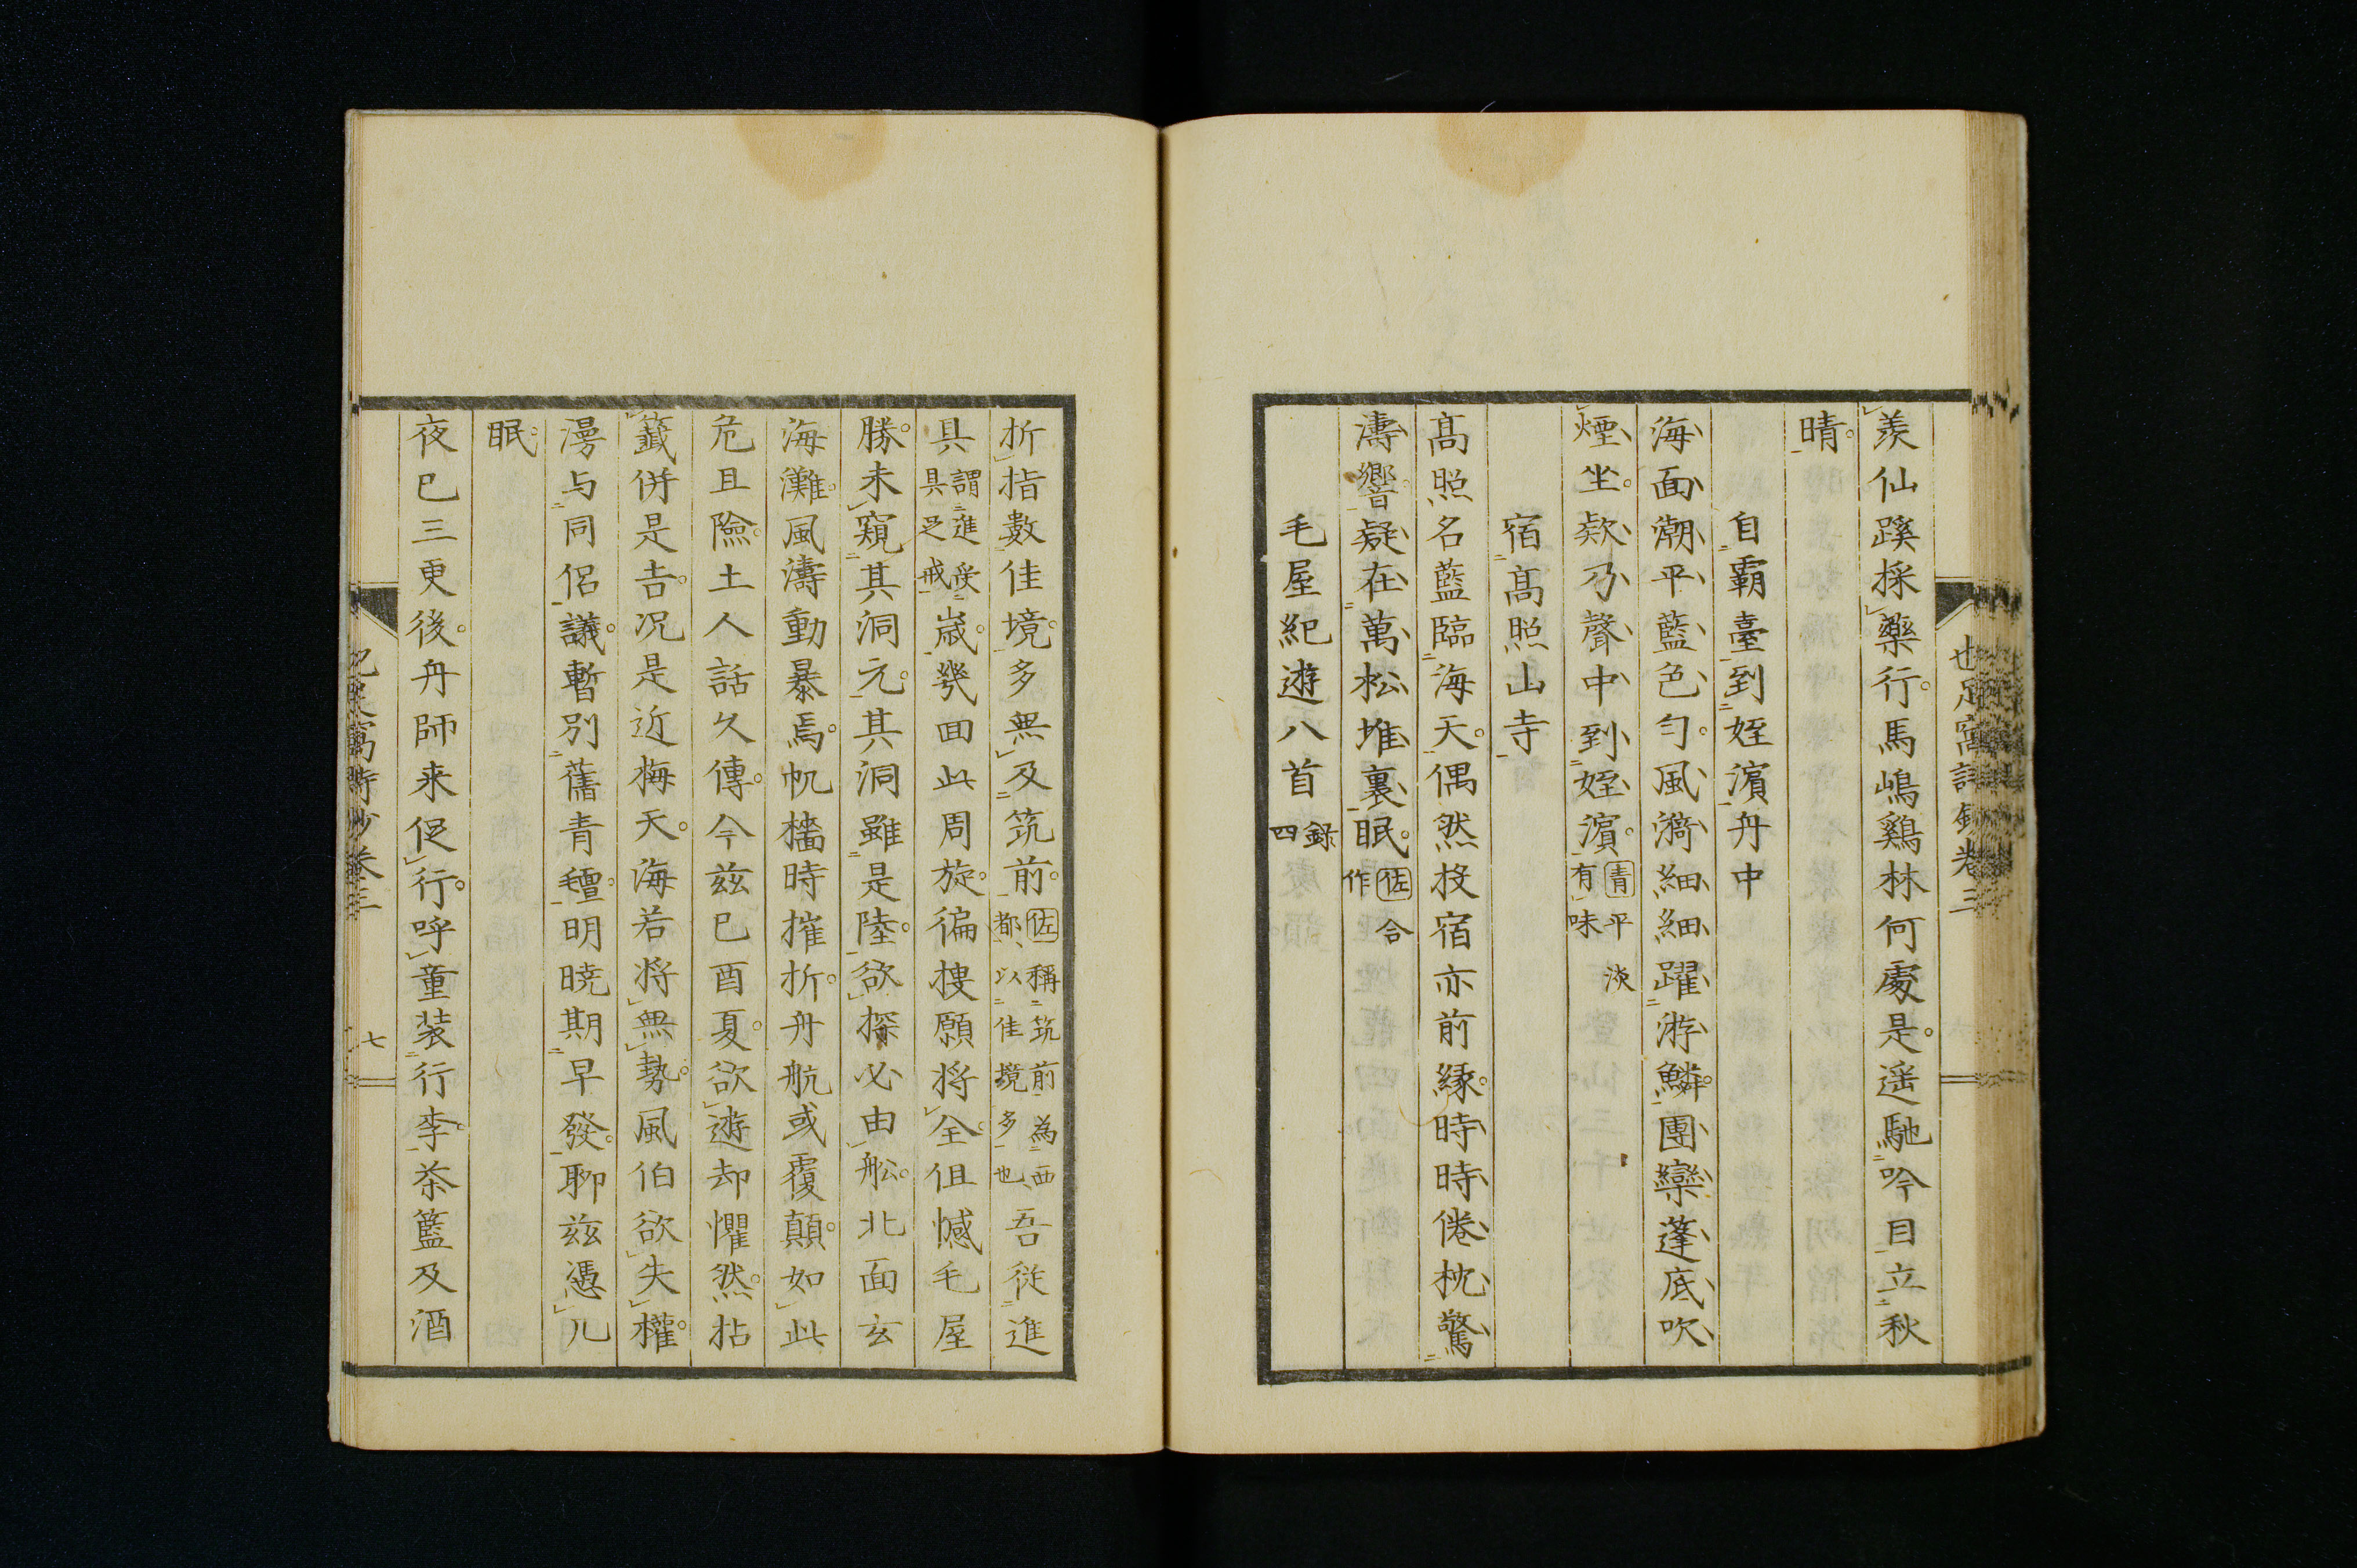 羨仙蹊採藥行馬嶋鷄林何處是遥馳吟目立秋
晴
自霸臺到姪濵舟中
海面潮平藍色勻風漪細細躍游鱗團欒蓬底吹
煙坐欸乃聲中到姪濵青平淡有味
宿髙照山寺
髙照名藍臨海天偶然投宿亦前緣時時倦枕驚
濤響疑在萬松堆裏眠佐合作
毛屋紀遊八首錄四
也足窩詩鈔卷三
折指數佳境多無及筑前佐稱筑前為西都以佳境多也吾従進
具謂進受具足戒歳幾回此周旋徧摟願将全但憾毛屋
勝未窺其洞元其洞雖是陸欲探必由舩北面玄
海灘風濤動暴焉帆檣時摧折舟航或覆顛如此
危且險土人話久傳今兹巳酉夏欲遊却懼然拈
籤併是吉况是近梅天海若将無勢風伯欲失權
漫与同侶議暫別舊青氊明暁期早發聊兹憑几
眠
夜巳三更後舟師来促行呼童装行李茶籃及酒
七